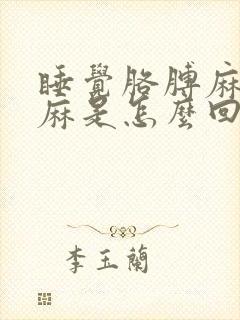 睡覺胳膊麻
麻是怎麼回
李玉蘭